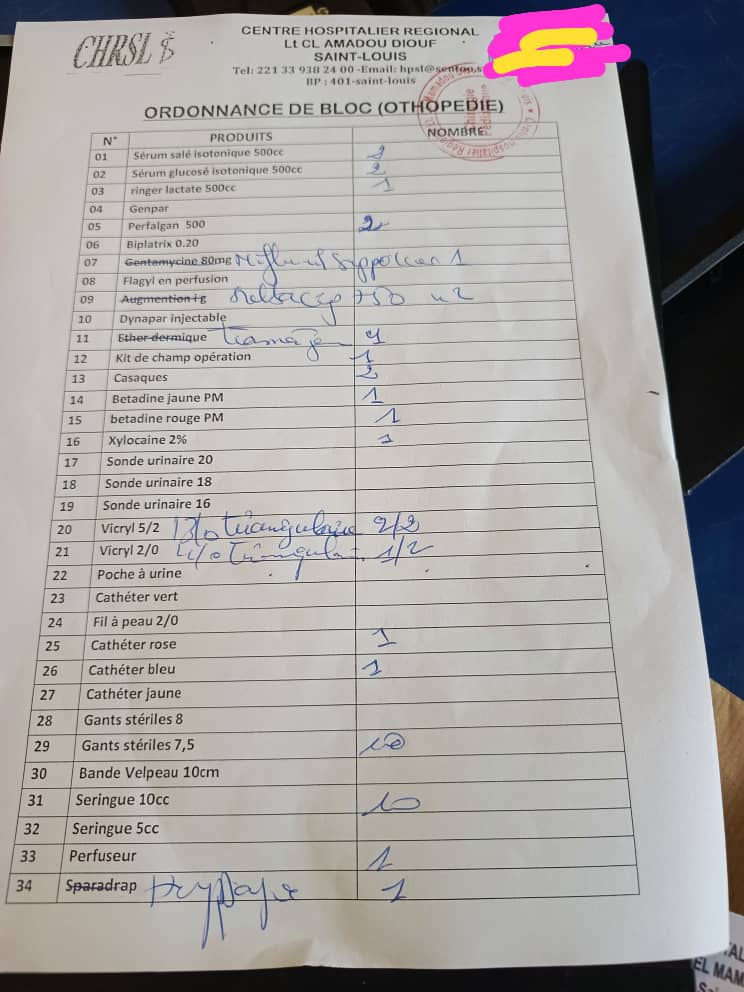 CHRSL
CENTRE HOSPITALIER REGIONAL
Lt CL AMADOU DIOUF
SAINT-LOUIS
Tel: 221 33 938 24 00 -Email: hpsl@sentoo.s
BP : 401-saint-louis
ORDONNANCE DE BLOC (OTHOPEDIE)
N° PRODUITS NOMBRE
01 Sérum salé isotonique 500cc 2
02 Sérum glucosé isotonique 500cc 2
03 ringer lactate 500cc 1
04 Genpar
05 Perfalgan 500 2
06 Biplatrix 0.20
07 Gentamycine 80mg 1
08 Flagyl en perfusion
09 Augmention 1g 750
10 Dynapar injectable
11 Ether dermique
12 Kit de champ opération 1
13 Casaques 2
14 Betadine jaune PM 1
15 betadine rouge PM 1
16 Xylocaine 2% 1
17 Sonde urinaire 20
18 Sonde urinaire 18
19 Sonde urinaire 16
20 Vicryl 5/2 triangulaire 2/2
21 Vicryl 2/0 4/0 triangulai 1/2
22 Poche à urine
23 Cathéter vert
24 Fil à peau 2/0
25 Cathéter rose 1
26 Cathéter bleu 1
27 Cathéter jaune
28 Gants stériles 8
29 Gants stériles 7,5 10
30 Bande Velpeau 10cm
31 Seringue 10cc 10
32 Seringue 5cc
33 Perfuseur 1
34 Sparadrap 1
TAL
EL MAM